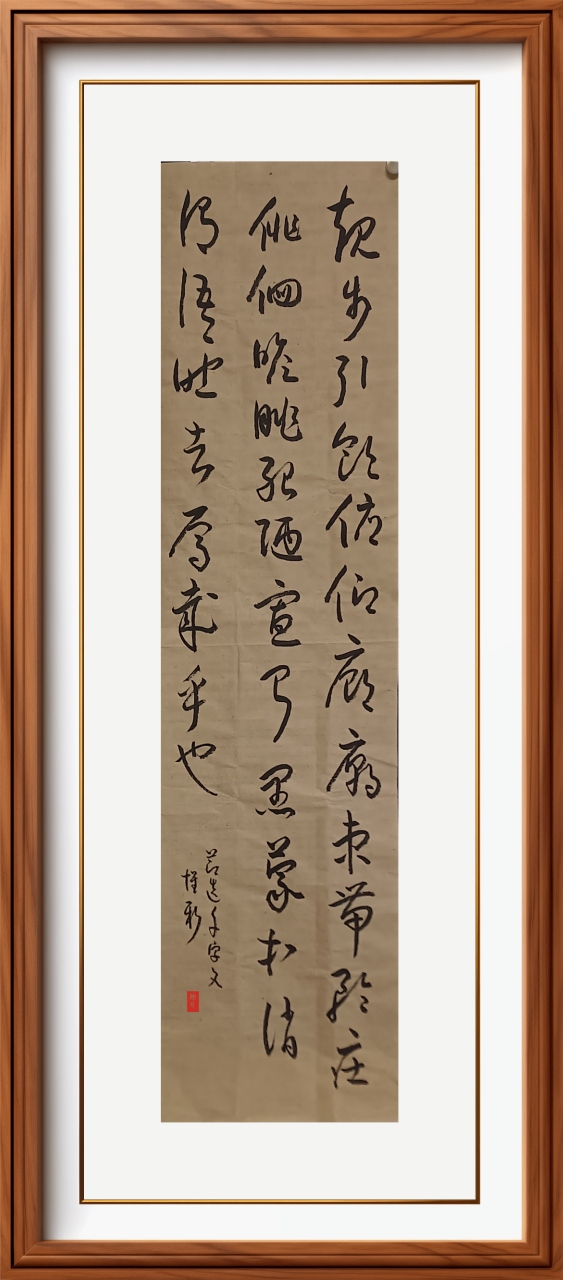 矩步引領俯仰廊廟束帶矜庄
徘徊瞻眺孤陋寡聞愚蒙等誚
謂語助者焉哉乎也
节选千字文